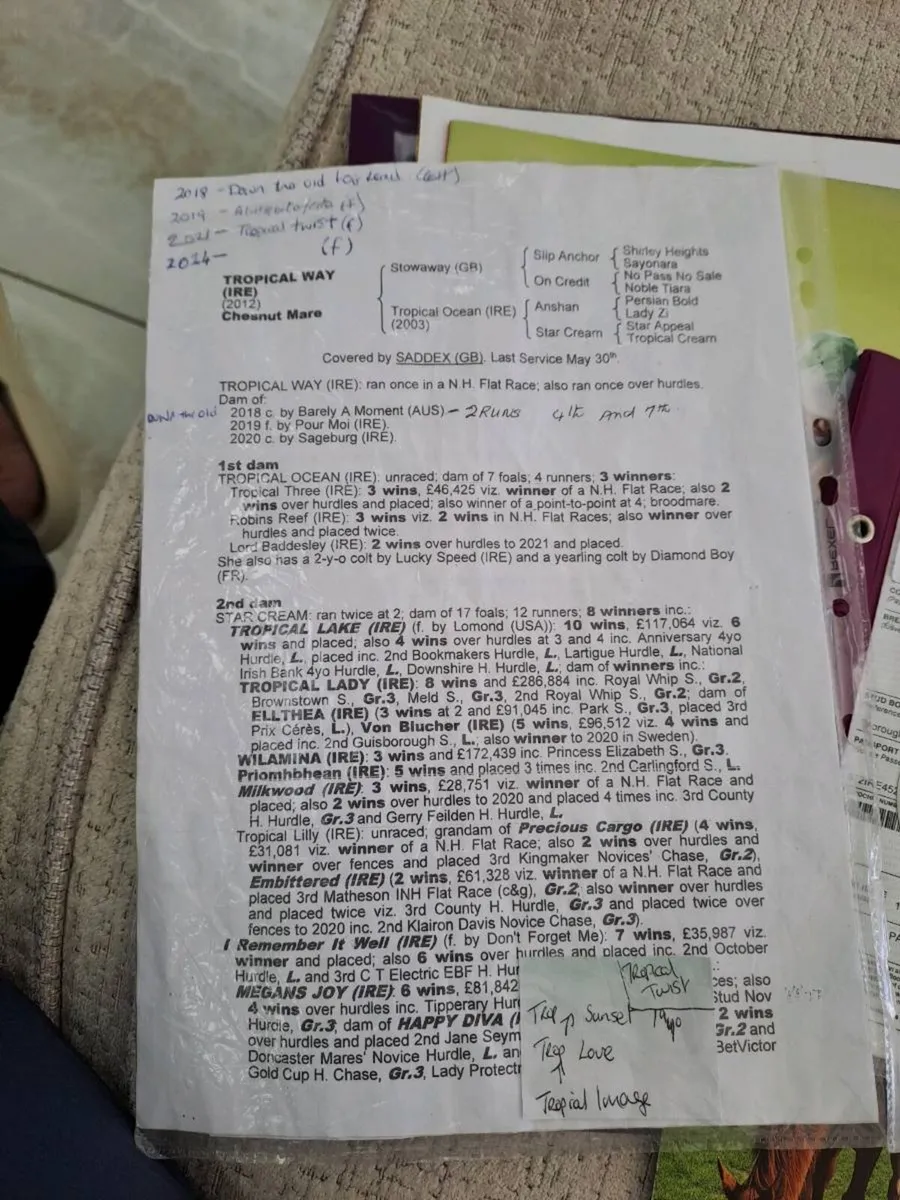 2018 - Down the old
2019 -
2021 - Tropical twist (f)
2024 - (f)
TROPICAL WAY
(IRE)
(2012)
Chesnut Mare
Stowaway (GB)
Tropical Ocean (IRE)
(2003)
Slip Anchor
On Credit
Anshan
Star Cream
Shirley Heights
Sayonara
No Pass No Sale
Noble Tiara
Persian Bold
Lady Zi
Star Appeal
Tropical Cream
Covered by SADDEX (GB). Last Service May 30th.
TROPICAL WAY (IRE): ran once in a N.H. Flat Race; also ran once over hurdles.
Dam of:
the old 2018 c. by Barely A Moment (AUS) - 2 RUNS 4th And 7th
2019 f. by Pour Moi (IRE).
2020 c. by Sageburg (IRE).
1st dam
TROPICAL OCEAN (IRE): unraced; dam of 7 foals; 4 runners; 3 winners:
Tropical Three (IRE): 3 wins, £46,425 viz. winner of a N.H. Flat Race; also 2
wins over hurdles and placed; also winner of a point-to-point at 4; broodmare.
Robins Reef (IRE): 3 wins viz. 2 wins in N.H. Flat Races; also winner over
hurdles and placed twice.
Lord Baddesley (IRE): 2 wins over hurdles to 2021 and placed.
She also has a 2-y-o colt by Lucky Speed (IRE) and a yearling colt by Diamond Boy
(FR).
2nd dam
STAR CREAM: ran twice at 2; dam of 17 foals; 12 runners; 8 winners inc.:
TROPICAL LAKE (IRE) (f. by Lomond (USA)): 10 wins, £117,064 viz. 6
wins and placed; also 4 wins over hurdles at 3 and 4 inc. Anniversary 4yo
Hurdle, L., placed inc. 2nd Bookmakers Hurdle, L., Lartigue Hurdle, L., National
Irish Bank 4yo Hurdle, L., Downshire H. Hurdle, L.; dam of winners inc.:
TROPICAL LADY (IRE): 8 wins and £286,884 inc. Royal Whip S., Gr.2,
Brownstown S., Gr.3, Meld S., Gr.3, 2nd Royal Whip S., Gr.2; dam of
ELLTHEA (IRE) (3 wins at 2 and £91,045 inc. Park S., Gr.3, placed 3rd
Prix Cérès, L.), Von Blucher (IRE) (5 wins, £96,512 viz. 4 wins and
placed inc. 2nd Guisborough S., L.; also winner to 2020 in Sweden).
WILAMINA (IRE): 3 wins and £172,439 inc. Princess Elizabeth S., Gr.3.
Priomhbhean (IRE): 5 wins and placed 3 times inc. 2nd Carlingford S., L.
Milkwood (IRE): 3 wins, £28,751 viz. winner of a N.H. Flat Race and
placed; also 2 wins over hurdles to 2020 and placed 4 times inc. 3rd County
H. Hurdle, Gr.3 and Gerry Feilden H. Hurdle, L.
Tropical Lilly (IRE): unraced; grandam of Precious Cargo (IRE) (4 wins,
£31,081 viz. winner of a N.H. Flat Race; also 2 wins over hurdles and
winner over fences and placed 3rd Kingmaker Novices' Chase, Gr.2),
Embittered (IRE) (2 wins, £61,328 viz. winner of a N.H. Flat Race and
placed 3rd Matheson INH Flat Race (c&g), Gr.2; also winner over hurdles
and placed twice viz. 3rd County H. Hurdle, Gr.3 and placed twice over
fences to 2020 inc. 2nd Klairon Davis Novice Chase, Gr.3).
I Remember It Well (IRE) (f. by Don't Forget Me): 7 wins, £35,987 viz.
winner and placed; also 6 wins over hurdles and placed inc. 2nd October
Hurdle, L. and 3rd C T Electric EBF H. Hur
MEGANS JOY (IRE): 6 wins, £81,842 ces; also
4 wins over hurdles inc. Tipperary Hur Stud Nov
Hurdle, Gr.3; dam of HAPPY DIVA (I 2 wins
over hurdles and placed 2nd Jane Seym Gr.2 and
Doncaster Mares' Novice Hurdle, L. an BetVictor
Gold Cup H. Chase, Gr.3, Lady Protectr
Tropical
Twist
Trop Sunset 7yo
Trop Love
Tropical Image
REXEL